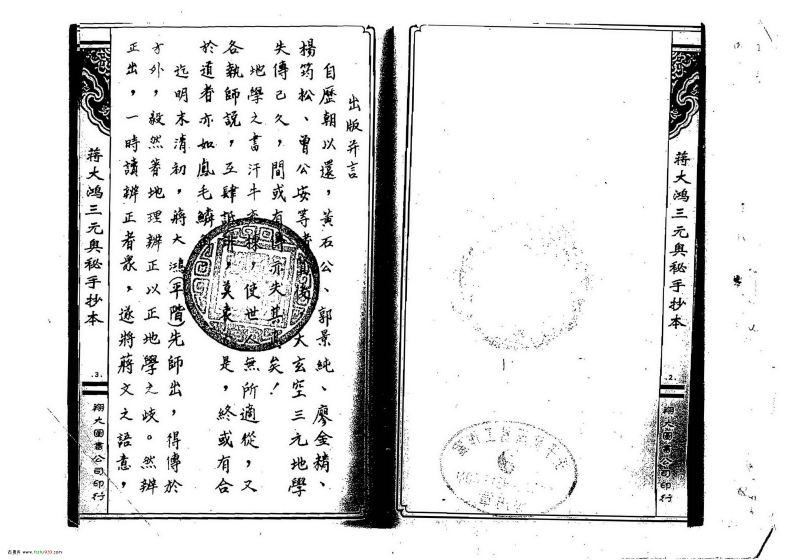 蔣大鴻三元奥秘手抄本
.2.
翔大圖書公司印行
出版弁言
自歷朝以還，黃石公、郭景純、廖金精、
楊筠松、曾公安等 大玄空三元地學
失傳已久，間或有 亦失其 矣！
地學之書汗牛充棟，使世人無所適從，又
各執師說，互肆 ，莫衷 是，終或有合
於道者亦如鳳毛麟
迄明末清初，蔣大鴻（平階）先師出，得傳於
方外，毅然著地理辨正以正地學之歧。然辨
正出，一時讀辨正者眾，遂將蔣文之語意，
蔣大鴻三元奥秘手抄本
.3.
翔大圖書公司印行